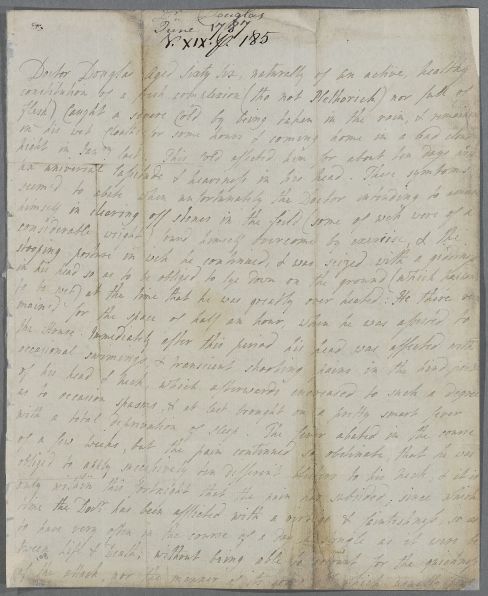 Dr. Douglas
June 1787
V. XIX. P. 185
Doctor Douglas Aged Sixty Six, naturally of an active, healthy
constitution of a fresh complexion (tho not Plethorick) nor full of
flesh) Caught a severe cold by being taken in the rain, & remaining
in his wet cloaths for some hours & coming home in a bad cold
night in Jan'y last. This cold affected him for about ten days with
an universal lassitude & heaviness in his head. These symptoms
seemed to abate when unfortunately the Doctor intending to amuse
himself in clearing off stones in the field (some of wch were of a
considerable weight) found himself overcome by exercise, & the
stooping posture in wch he continued, & was seized with a giddiness
in his head so as to be obliged to lye down on the ground (which happened
to be wet) at the time that he was greatly over heated: He there re-
mained for the space of half an hour, when he was assisted to
the House: Immediately after this period his head was affected with
occasional swimmings & transient shooting pains in the hind part
of his head & neck, which afterwards increased to such a degree
as to occasion spasms, & at last brought on a pretty smart fever
with a total deprivation of sleep. The fever abated in the course
of a few weeks, but the pain continued so obstinate that he was
obliged to apply successively different blisters to his neck & it is
only within this fortnight that the pain has subsided, since which
time the Doctr has been affected with a & faintishness, so as
to have very often in the course of a day to as it were be
tween life & death, without being able to account for the quickness
of the attack nor the manner of its